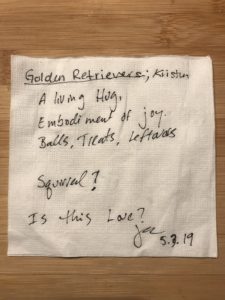 Golden Retrievers; Kristen
A living Hug,
Embodiment of joy.
Balls, Treats, Leftovers
Squirrel?
Is this Love?
5.3.19